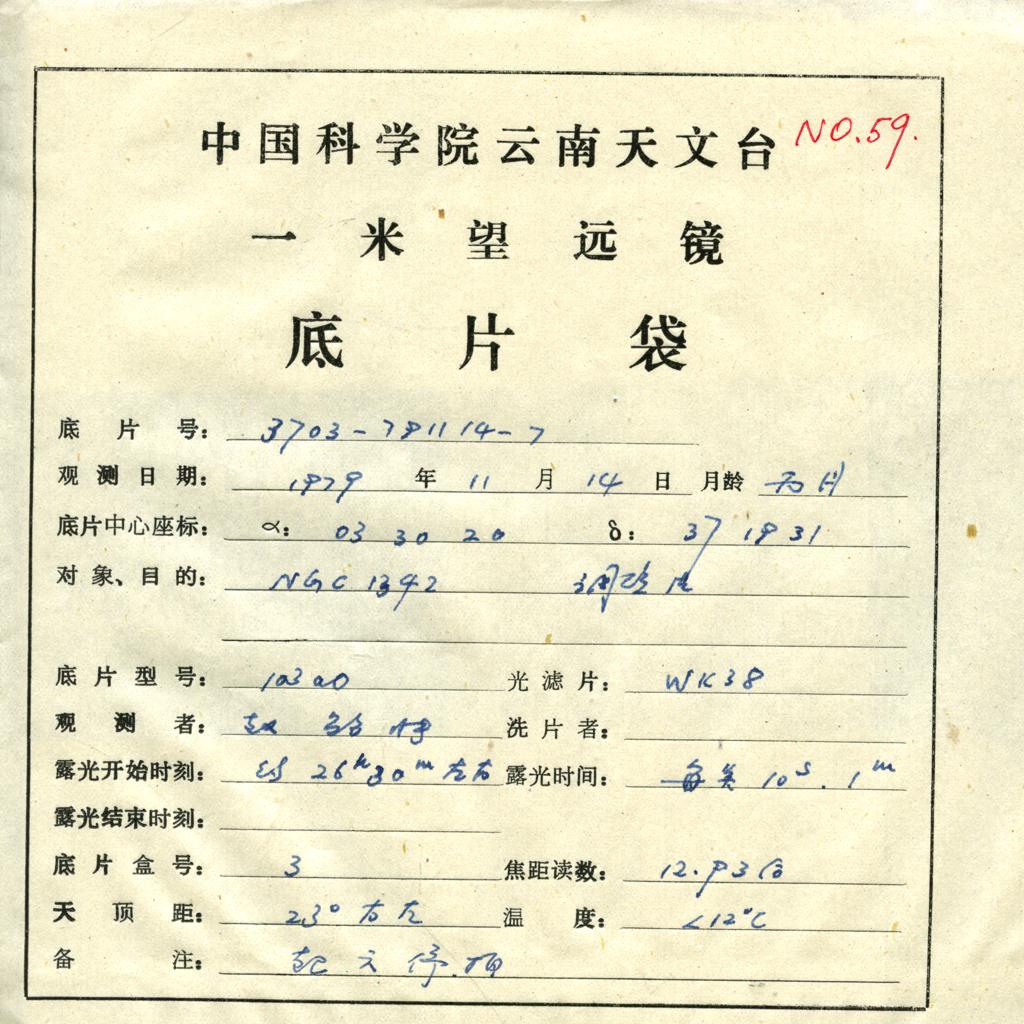 中国科学院云南天文台 NO.59.
一米望远镜
底片袋
底片号: 3703-791114-7
观测日期: 1979 年 11 月 14 日 月龄
底片中心座标: α: 03 30 20 δ: 37 19 31
对象、目的: NGC 1342
底片型号: 103aO 光滤片: WK38
观测者: 洗片者:
露光开始时刻: 26h30m左右 露光时间: 10s. 1m
露光结束时刻:
底片盒号: 3 焦距读数: 12.93
天顶距: 23° 温度: <12°C
备注: